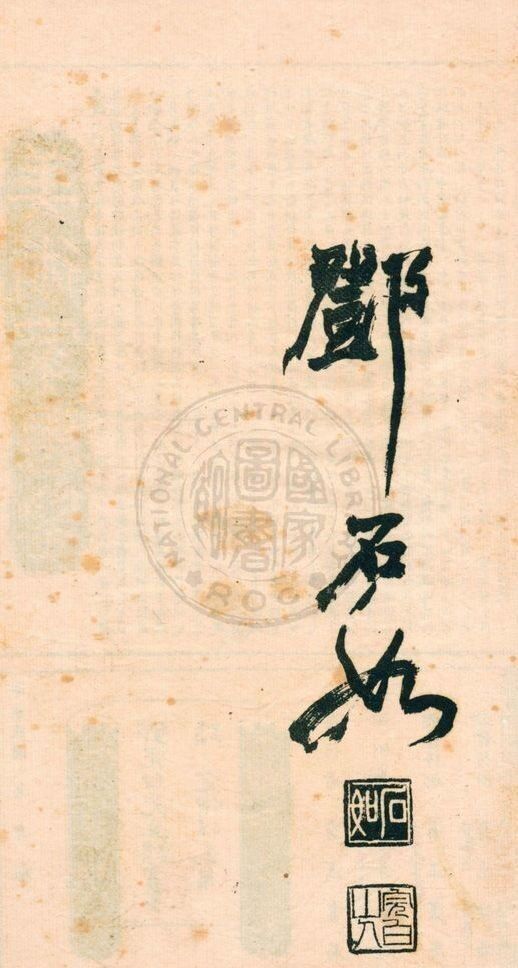 鄧石如
石如
完白山人
NATIONAL CENTRAL LIBRARY
國家圖書館
ROC